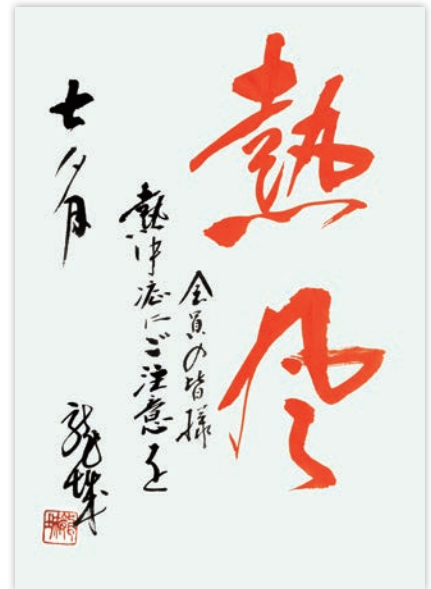 熱風
会員の皆様
熱中症にご注意を
七夕月
龍城